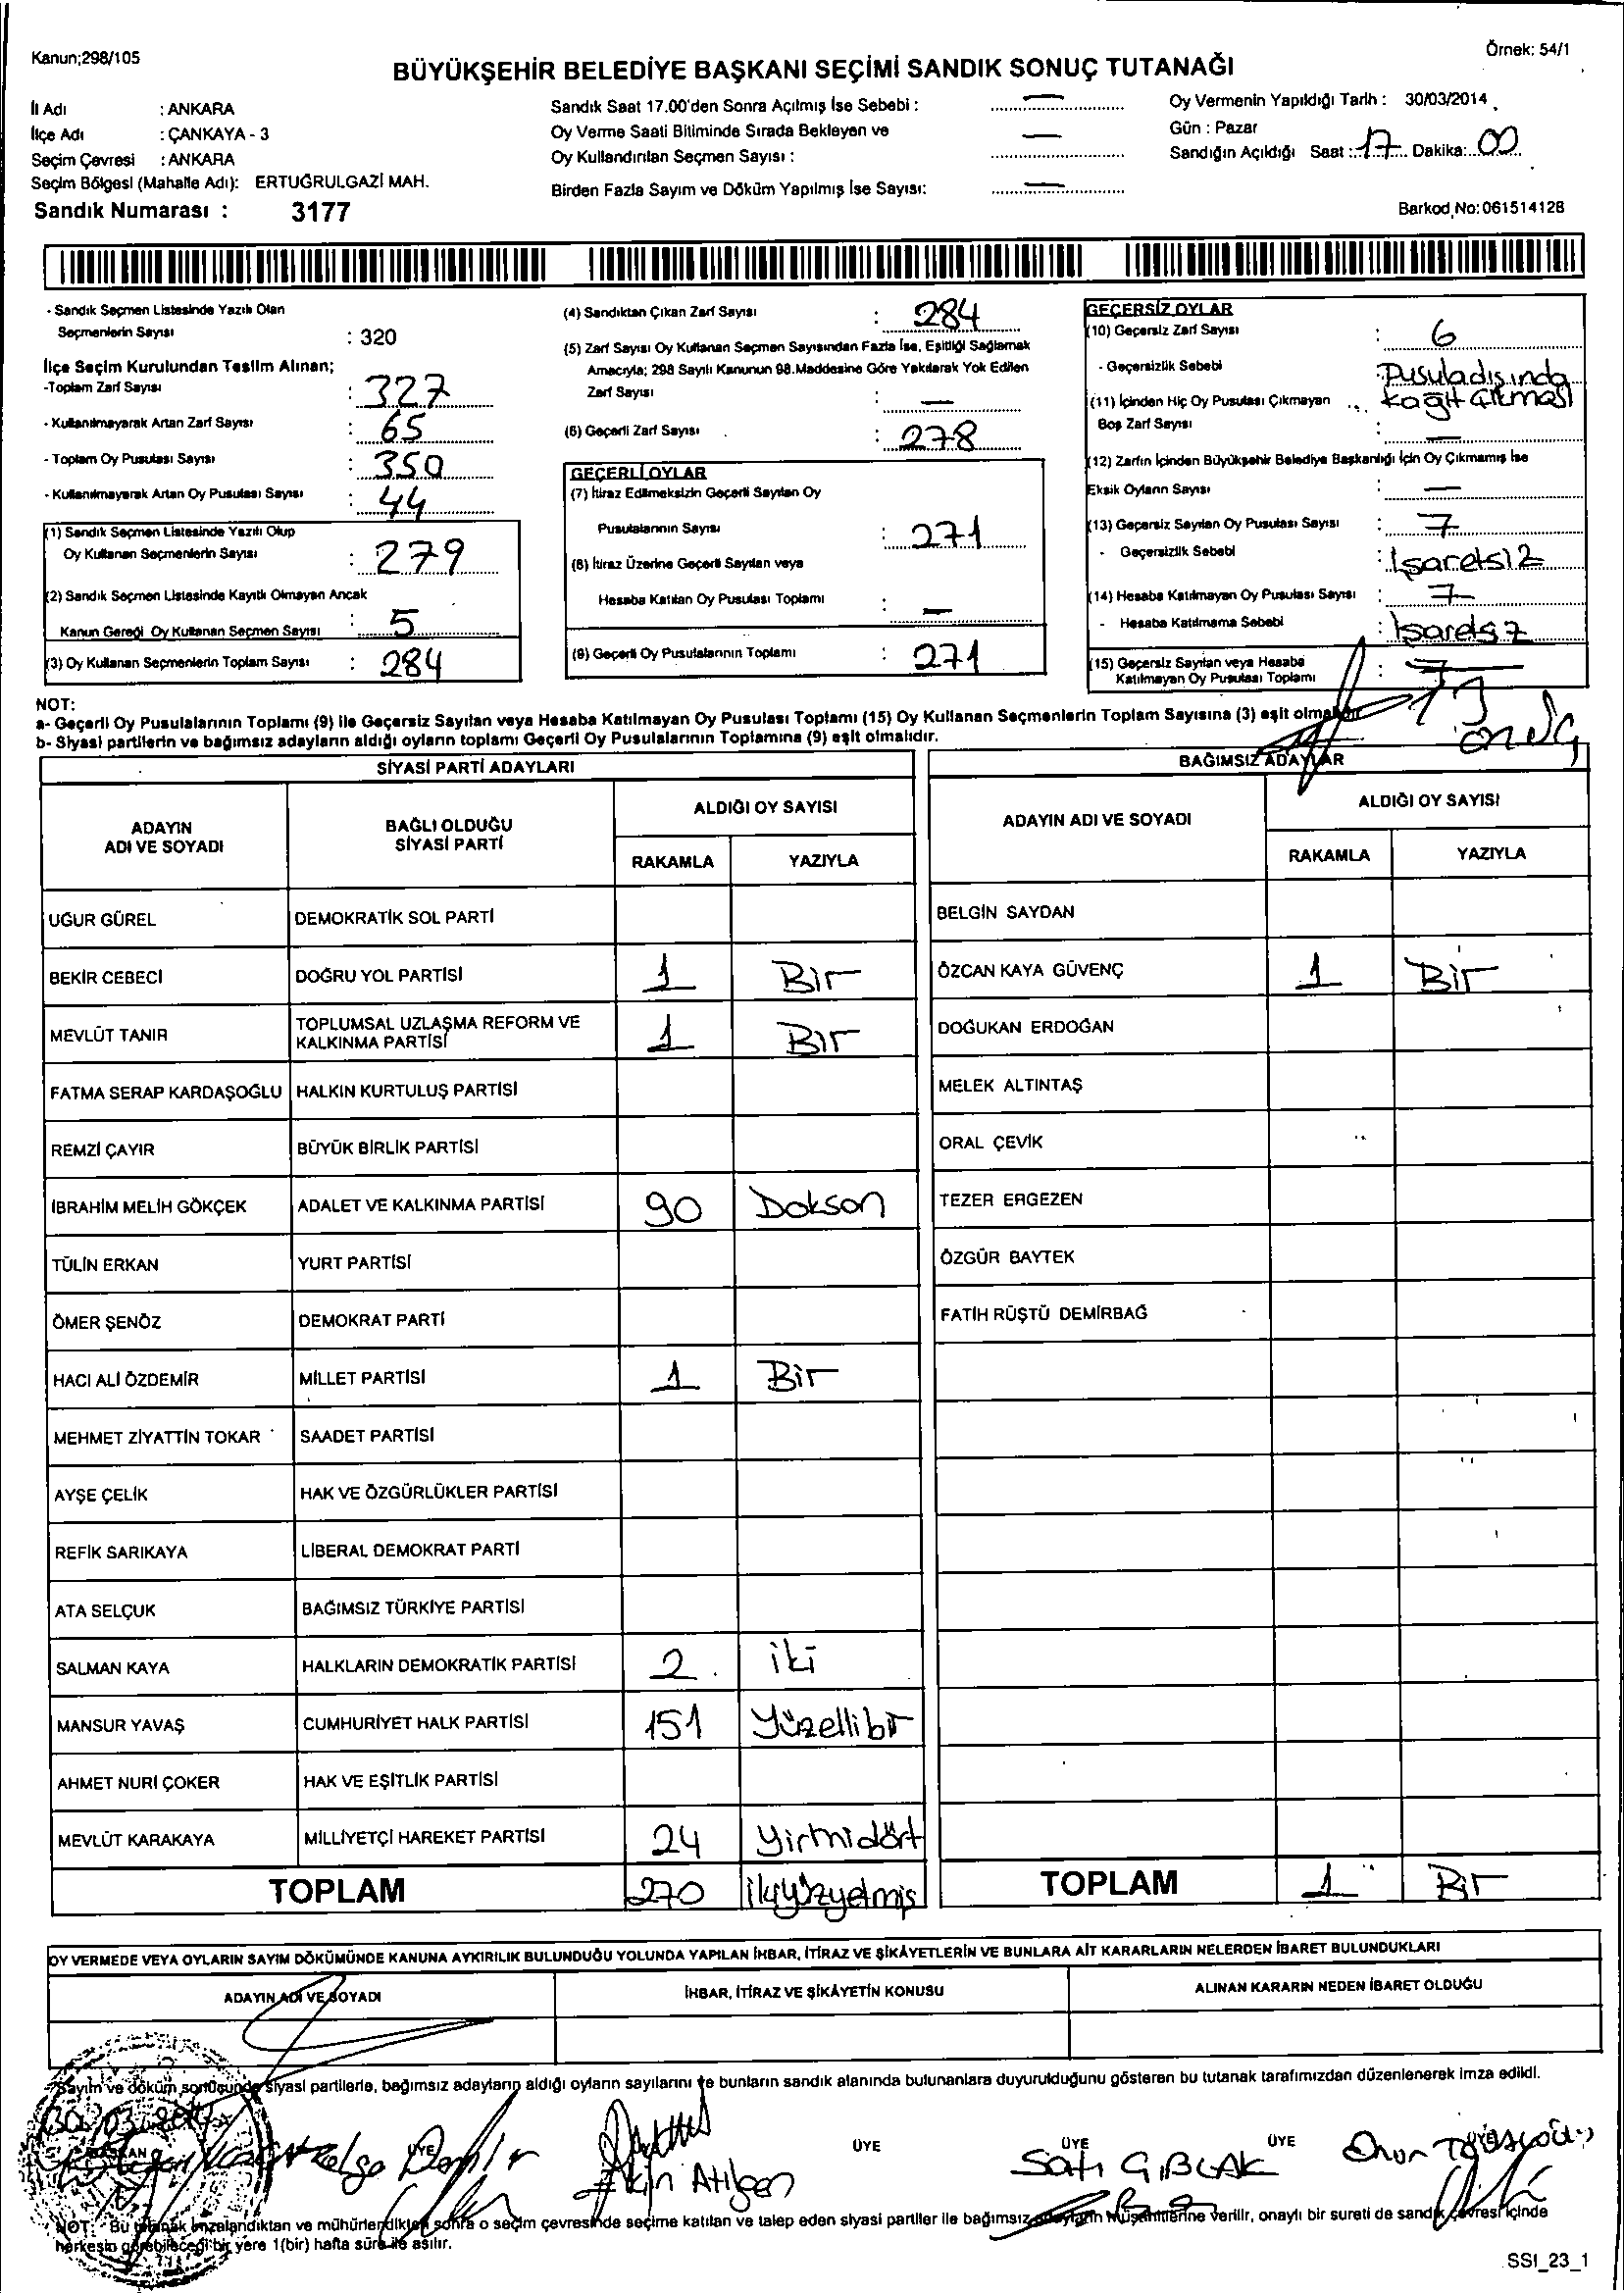 Kanun;298/105
Örnek: 54/1
BÜYÜKŞEHİR BELEDİYE BAŞKANI SEÇİMİ SANDIK SONUÇ TUTANAĞI
İl Adı : ANKARA
İlçe Adı : ÇANKAYA - 3
Seçim Çevresi : ANKARA
Seçim Bölgesi (Mahalle Adı): ERTUĞRULGAZİ MAH.
Sandık Numarası : 3177
Sandık Saat 17.00'den Sonra Açılmış İse Sebebi : —
Oy Verme Saati Bitiminde Sırada Bekleyen ve
Oy Kullandırılan Seçmen Sayısı : —
Birden Fazla Sayım ve Döküm Yapılmış İse Sayısı: —
Oy Vermenin Yapıldığı Tarih : 30/03/2014
Gün : Pazar
Sandığın Açıldığı Saat : 17 Dakika: 00
Barkod No: 061514128
- Sandık Seçmen Listesinde Yazılı Olan
Seçmenlerin Sayısı : 320
İlçe Seçim Kurulundan Teslim Alınan;
-Toplam Zarf Sayısı : 327
- Kullanılmayarak Artan Zarf Sayısı : 65
- Toplam Oy Pusulası Sayısı : 350
- Kullanılmayarak Artan Oy Pusulası Sayısı : 44
(1) Sandık Seçmen Listesinde Yazılı Olup
Oy Kullanan Seçmenlerin Sayısı : 279
(2) Sandık Seçmen Listesinde Kayıtlı Olmayan Ancak
Kanun Gereği Oy Kullanan Seçmen Sayısı : 5
(3) Oy Kullanan Seçmenlerin Toplam Sayısı : 284
(4) Sandıktan Çıkan Zarf Sayısı : 284
(5) Zarf Sayısı Oy Kullanan Seçmen Sayısından Fazla İse, Eşitliği Sağlamak
Amacıyla; 298 Sayılı Kanunun 98.Maddesine Göre Yakılarak Yok Edilen
Zarf Sayısı : —
(6) Geçerli Zarf Sayısı : 278
GEÇERLİ OYLAR
(7) İtiraz Edilmeksizin Geçerli Sayılan Oy
Pusulalarının Sayısı : 271
(8) İtiraz Üzerine Geçerli Sayılan veya
Hesaba Katılan Oy Pusulası Toplamı : —
(9) Geçerli Oy Pusulalarının Toplamı : 271
GEÇERSİZ OYLAR
(10) Geçersiz Zarf Sayısı : 6
- Geçersizlik Sebebi : Pusula dışında
kağıt çıkması
(11) İçinden Hiç Oy Pusulası Çıkmayan
Boş Zarf Sayısı : —
(12) Zarfın İçinden Büyükşehir Belediye Başkanlığı İçin Oy Çıkmamış İse
Eksik Oyların Sayısı : —
(13) Geçersiz Sayılan Oy Pusulası Sayısı : 7
- Geçersizlik Sebebi : İşaretsiz
(14) Hesaba Katılmayan Oy Pusulası Sayısı : 7
- Hesaba Katılmama Sebebi : İşaretsiz
(15) Geçersiz Sayılan veya Hesaba
Katılmayan Oy Pusulası Toplamı : 7
NOT:
a- Geçerli Oy Pusulalarının Toplamı (9) ile Geçersiz Sayılan veya Hesaba Katılmayan Oy Pusulası Toplamı (15) Oy Kullanan Seçmenlerin Toplam Sayısına (3) eşit olmalıdır.
b- Siyasi partilerin ve bağımsız adayların aldığı oyların toplamı Geçerli Oy Pusulalarının Toplamına (9) eşit olmalıdır.
SİYASİ PARTİ ADAYLARI
ADAYIN ADI VE SOYADI BAĞLI OLDUĞU SİYASİ PARTİ ALDIĞI OY SAYISI
RAKAMLA YAZIYLA
UĞUR GÜREL DEMOKRATİK SOL PARTİ
BEKİR CEBECİ DOĞRU YOL PARTİSİ 1 Bir
MEVLÜT TANIR TOPLUMSAL UZLAŞMA REFORM VE KALKINMA PARTİSİ 1 Bir
FATMA SERAP KARDAŞOĞLU HALKIN KURTULUŞ PARTİSİ
REMZİ ÇAYIR BÜYÜK BİRLİK PARTİSİ
İBRAHİM MELİH GÖKÇEK ADALET VE KALKINMA PARTİSİ 90 Doksan
TÜLİN ERKAN YURT PARTİSİ
ÖMER ŞENÖZ DEMOKRAT PARTİ
HACI ALİ ÖZDEMİR MİLLET PARTİSİ 1 Bir
MEHMET ZİYATTİN TOKAR SAADET PARTİSİ
AYŞE ÇELİK HAK VE ÖZGÜRLÜKLER PARTİSİ
REFİK SARIKAYA LİBERAL DEMOKRAT PARTİ
ATA SELÇUK BAĞIMSIZ TÜRKİYE PARTİSİ
SALMAN KAYA HALKLARIN DEMOKRATİK PARTİSİ 2 iki
MANSUR YAVAŞ CUMHURİYET HALK PARTİSİ 151 Yüzellibir
AHMET NURİ ÇOKER HAK VE EŞİTLİK PARTİSİ
MEVLÜT KARAKAYA MİLLİYETÇİ HAREKET PARTİSİ 24 yirmidört
TOPLAM 270 ikiyüzyetmiş
BAĞIMSIZ ADAYLAR
ADAYIN ADI VE SOYADI ALDIĞI OY SAYISI
RAKAMLA YAZIYLA
BELGİN SAYDAN
ÖZCAN KAYA GÜVENÇ 1 Bir
DOĞUKAN ERDOĞAN
MELEK ALTINTAŞ
ORAL ÇEVİK
TEZER ERGEZEN
ÖZGÜR BAYTEK
FATİH RÜŞTÜ DEMİRBAĞ
TOPLAM 1 Bir
OY VERMEDE VEYA OYLARIN SAYIM DÖKÜMÜNDE KANUNA AYKIRILIK BULUNDUĞU YOLUNDA YAPILAN İHBAR, İTİRAZ VE ŞİKÂYETLERİN VE BUNLARA AİT KARARLARIN NELERDEN İBARET BULUNDUKLARI
ADAYIN ADI VE SOYADI İHBAR, İTİRAZ VE ŞİKÂYETİN KONUSU ALINAN KARARIN NEDEN İBARET OLDUĞU
Sayım ve döküm sonucunda siyasi partilerle, bağımsız adayların aldığı oyların sayılarını ve bunların sandık alanında bulunanlara duyurulduğunu gösteren bu tutanak tarafımızdan düzenlenerek imza edildi.
30/03/2014
BAŞKAN ÜYE ÜYE ÜYE ÜYE ÜYE
Akın Atılgan Satı GIBLAK Onur
NOT: Bu tutanak imzalandıktan ve mühürlendikten sonra o seçim çevresinde seçime katılan ve talep eden siyasi partiler ile bağımsız adayların müşahitlerine verilir, onaylı bir sureti de sandık çevresi içinde
herkesin görebileceği bir yere 1(bir) hafta süre ile asılır.
SSI_23_1